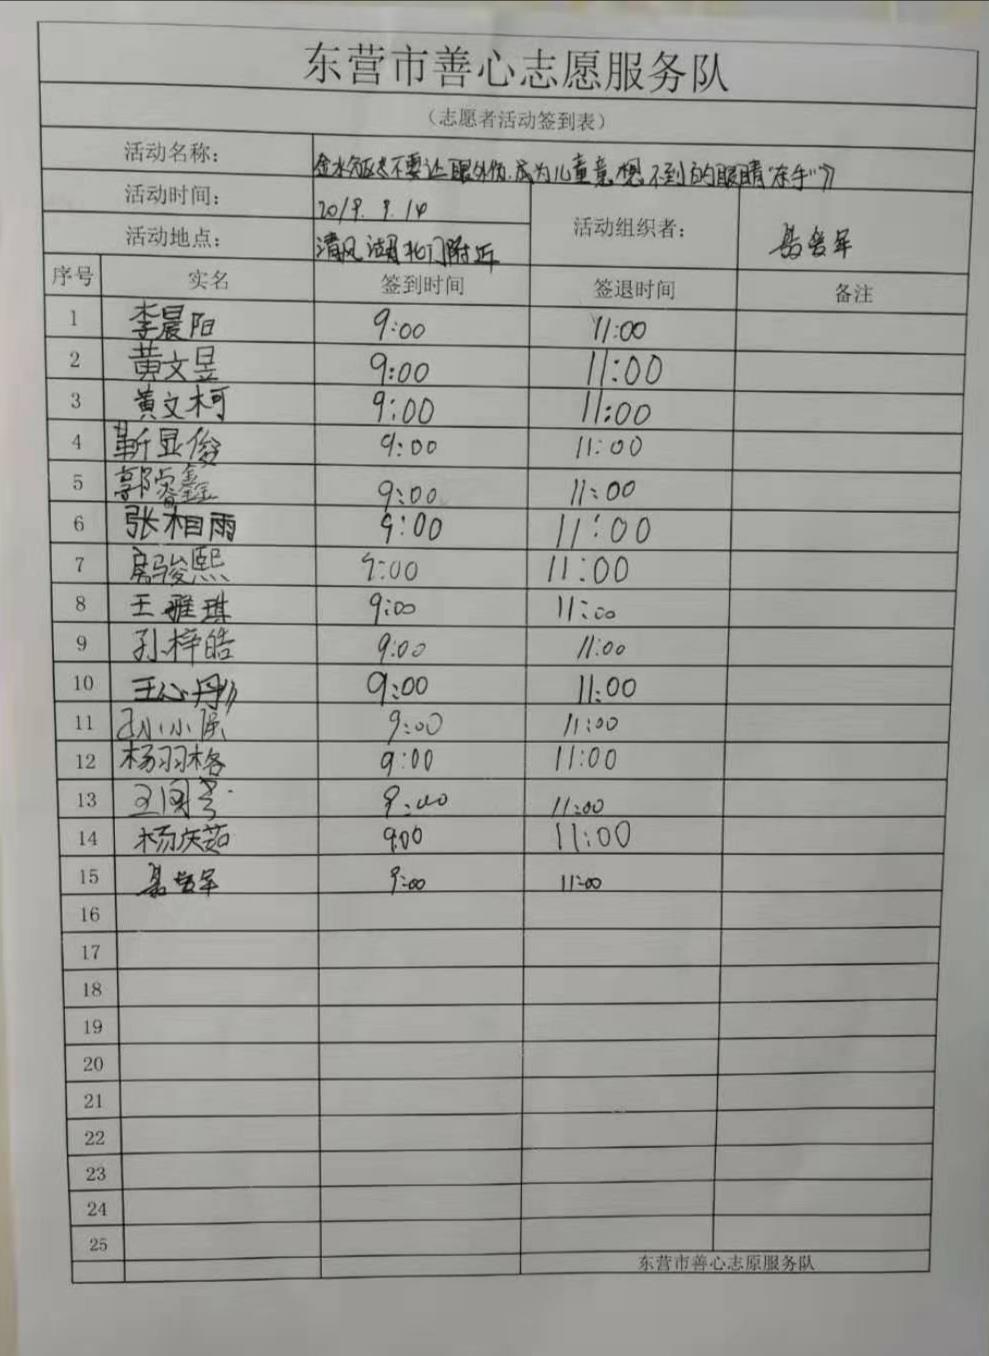 东营市善心志愿服务队
（志愿者活动签到表）
活动名称： 不要让眼外伤,成为儿童意想不到的眼睛"杀手"》
活动时间： 2019.9.14 活动组织者：
活动地点： 清风湖北门附近
序号 实名 签到时间 签退时间 备注
1 李晨阳 9:00 11:00
2 黄文昱 9:00 11:00
3 黄文柯 9:00 11:00
4 靳显俊 9:00 11:00
5 郭睿鑫 9:00 11:00
6 张相雨 9:00 11:00
7 房骏熙 9:00 11:00
8 王雅琪 9:00 11:00
9 孙梓皓 9:00 11:00
10 王心丹 9:00 11:00
11 9:00 11:00
12 杨羽格 9:00 11:00
13 9:00 11:00
14 杨庆茹 9:00 11:00
15 9:00 11:00
16
17
18
19
20
21
22
23
24
25
东营市善心志原服务队